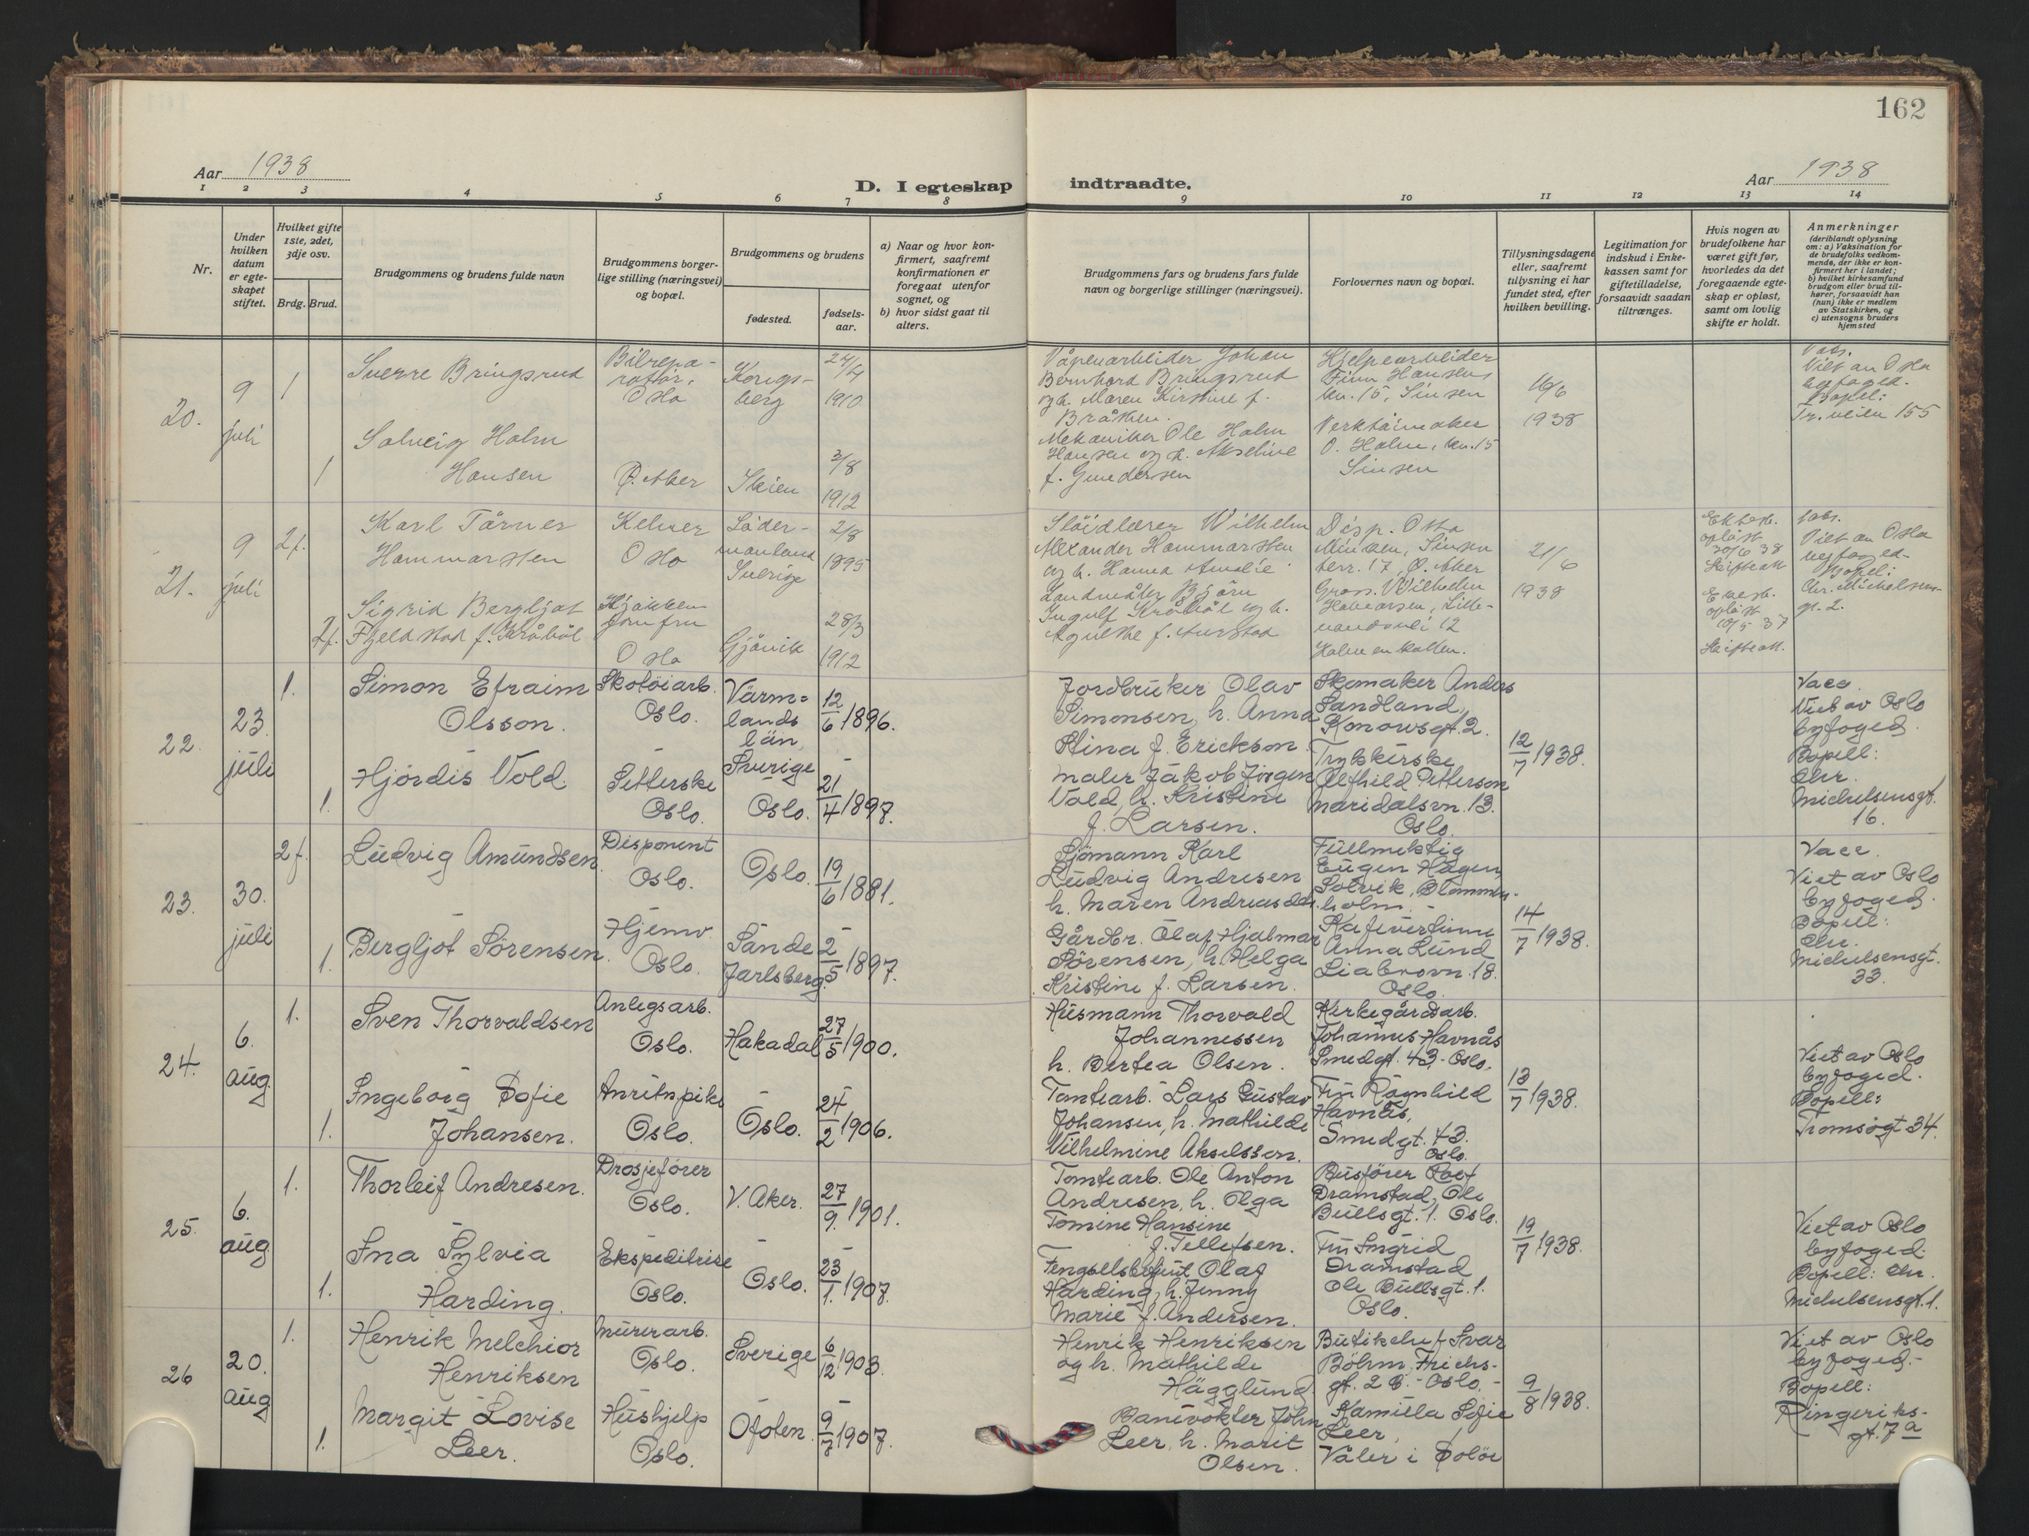 162
Aar 1938
D. I egteskap indtraadte.
Aar 1938
1 2 3 4 5 6 7 8 9 10 11 12 13 14
Nr.
Under hvilken datum er egteskapet stiftet.
Hvilket gifte 1ste, 2det, 3dje osv.
Brdg. Brud.
Brudgommens og brudens fulde navn
Brudgommens borgerlige stilling (næringsvei) og bopæl.
Brudgommens og brudens
fødested.
fødselsaar.
a) Naar og hvor konfirmert, saafremt konfirmationen er foregaat utenfor sognet, og
b) hvor sidst gaat til alters.
Brudgommens fars og brudens fars fulde navn og borgerlige stillinger (næringsvei).
Forlovernes navn og bopæl.
Tillysningsdagene eller, saafremt tillysning ei har fundet sted, efter hvilken bevilling.
Legitimation for indskud i Enkekassen samt for giftetilladelse, forsaavidt saadan tiltrænges.
Hvis nogen av brudefolkene har været gift før, hvorledes da det foregaaende egteskap er opløst, samt om lovlig skifte er holdt.
Anmerkninger
(deriblandt oplysning om: a) Vaksination for de brudefolks vedkommende, der ikke er konfirmert her i landet; b) hvilket kirkesamfund brudgom eller brud tilhører, forsaavidt han (hun) ikke er medlem av Statskirken, og c) utensogns bruders hjemsted
20.
9 juli
1
Sverre Bringsrud
Bilreparatør. Oslo
Kongsberg
24/4 1910
Våpenarbeider Johan
Bernhard Bringsrud
og h. Maren Kirstine f.
Bråten.
Hjelpearbeider
Finn Hansen
bn. 15, Sinsen
16/6 1938
Vabs.
Viet av Oslo
byfoged.
Bopel:
Tr.veien 155
1
Solveig Holm
Hansen
Ø. Aker
Skien
3/8 1912
Mekaniker Ole Holm
Hansen og h. Akseline
f. Gundersen
Verktøimaker
O. Holm, bn. 15
Sinsen
21.
9 juli
2f.
Karl Tårner
Hammarsten
Kelner
Oslo
Södermanland
Sverige
2/8 1895
Sløidlærer Wilhelm
Alexander Hammarsten
og h. Hanna Amalie
Disp. Otto
Sinsen
terr. 17, Ø. Aker
21/6 1938
Ektesk.
opløst
20/6 38
Skifteatt
Vabs.
Viet av Oslo
byfoged.
Bopel:
Chr. Michelsensgt. 2.
2f.
Sigrid Bergljot
Fjeldstad f. Kråbøl
Kjøkkenjomfru
Oslo
Gjøvik
28/3 1912
Landmåler Bjørn
Ingulf Kråbøl og h.
Agnethe f. Aurstad
Gross. Wilhelm
Halvorsen, Lillevandsvei 12
Holmenkollen.
Ektesk.
opløst
10/5 37
Skifteatt.
22.
23. juli
1.
Simon Efraim
Olsson.
Skotøiarb.
Oslo.
Värmlands
län,
Sverige
12/6 1896.
Jordbruker Olav
Simonsen, h. Anna
Stina f. Erickson.
Skomaker Anders
Sandland,
Konowsgt. 2.
12/7 1938.
Vacc.
Viet av Oslo
byfoged.
Bopell:
Chr.
Michelsensgt.
16.
1.
Hjørdis Vold.
Setterske
Oslo.
Oslo.
21/4 1897.
Maler Jakob Jørgen
Vold, h. Kristine
f. Larsen.
Trykkerske
Alfhild Petterson
Maridalsvn. 13.
Oslo.
23.
30. juli
2f.
Ludvig Amundsen.
Disponent
Oslo.
Oslo.
19/6 1881.
Sjømann Karl
Ludvig Andresen
h. Maren Andreasdtr.
Fullmektig
Eugen Hagen,
Solvik, Blommenholm.
14/7 1938.
Vacc.
Viet av Oslo
byfoged.
Bopell:
Chr.
Michelsensgt.
33.
1.
Bergljot Sørensen.
Hjemv.
Oslo.
Sande
Jarlsberg.
2/5 1897.
Gårdbr. Olaf Hjalmar
Sørensen, h. Helga
Kristine f. Larsen.
Kafévertinne
Anna Lund
Liabrovn. 18.
Oslo.
24.
6. aug
1.
Sven Thorvaldsen
Anlegsarb.
Oslo.
Hakadal
27/5 1900.
Husmann Thorvald
Johannessen
h. Bertea Olsen.
Kirkegårdsarb.
Johannes Havnås
Smedgt. 43. Oslo.
13/7 1938.
Viet av Oslo
byfoged.
Bopell:
Tromsøgt 34.
1.
Ingeborg Sofie
Johansen.
Anretn.pike
Oslo.
Oslo.
24/2 1906.
Tomtearb. Lars Gustav
Johansen, h. Mathilde
Vilhelmine Akselsson.
Fru Ragnhild
Havnås,
Smedgt. 43.
Oslo.
25.
6. aug
1.
Thorleif Andresen.
Drosjefører
Oslo.
V. Aker.
27/9 1901.
Tomtearb. Ole Anton
Andresen, h. Olga
Tomine Hansine
f. Tellefsen.
Busfører Rolf
Dramstad, Ole
Bullsgt. 1. Oslo.
19/7 1938.
Viet av Oslo
byfoged.
Bopell: Chr.
Michelsensgt. 1.
1.
Ina Sylvia
Harding.
Ekspeditrise
Oslo.
Oslo.
23/1. 1907.
Fengselsbetjent Olaf
Harding, h. Jenny
Marie f. Andersen.
Fru Ingrid
Dramstad
Ole Bullsgt. 1.
Oslo.
26
20. aug
1.
Henrik Melchior
Henriksen
Murerarb.
Oslo.
Sverige
6/12 1903.
Henrik Henriksen
og h. Mathilde
Hägglund
Butikchef Ivar
Böhm, Frichsgt. 2 B. - Oslo. -
9/8 1938.
Viet av Oslo
byfoged. -
Bopell:
Ringeriksgt. 7 a
1.
Margit Lovise
Leer.
Hushjelp
Oslo.
Ofoten.
9/7 1907.
Banevokter John
Leer, h. Marit
Olsen.
Kamilla Sofie
Leer,
Våler i Solør